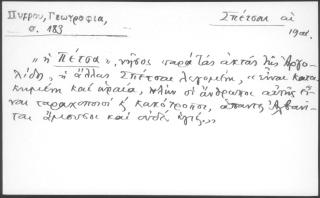 Πύρρου, Γεωγραφία,
Σπέτσαι αἱ
σ. 183
19ον.
"ἡ Πέτσα", νῆσος παρὰ τὰς ἀκτὰς τῆς Ἀργο-
λίδος, ἡ ἄλλως Σπέτσαι λεγομένη, "εἶναι κατῳ-
κημένη καὶ ὡραία, πλὴν οἱ ἄνθρωποι αὐτῆς εἶ-
ναι ταραχοποιοὶ κ κακότροποι, ἅπαντες Ἀλβανῖ-
ται ἄμουσοι καὶ οὐδὲν